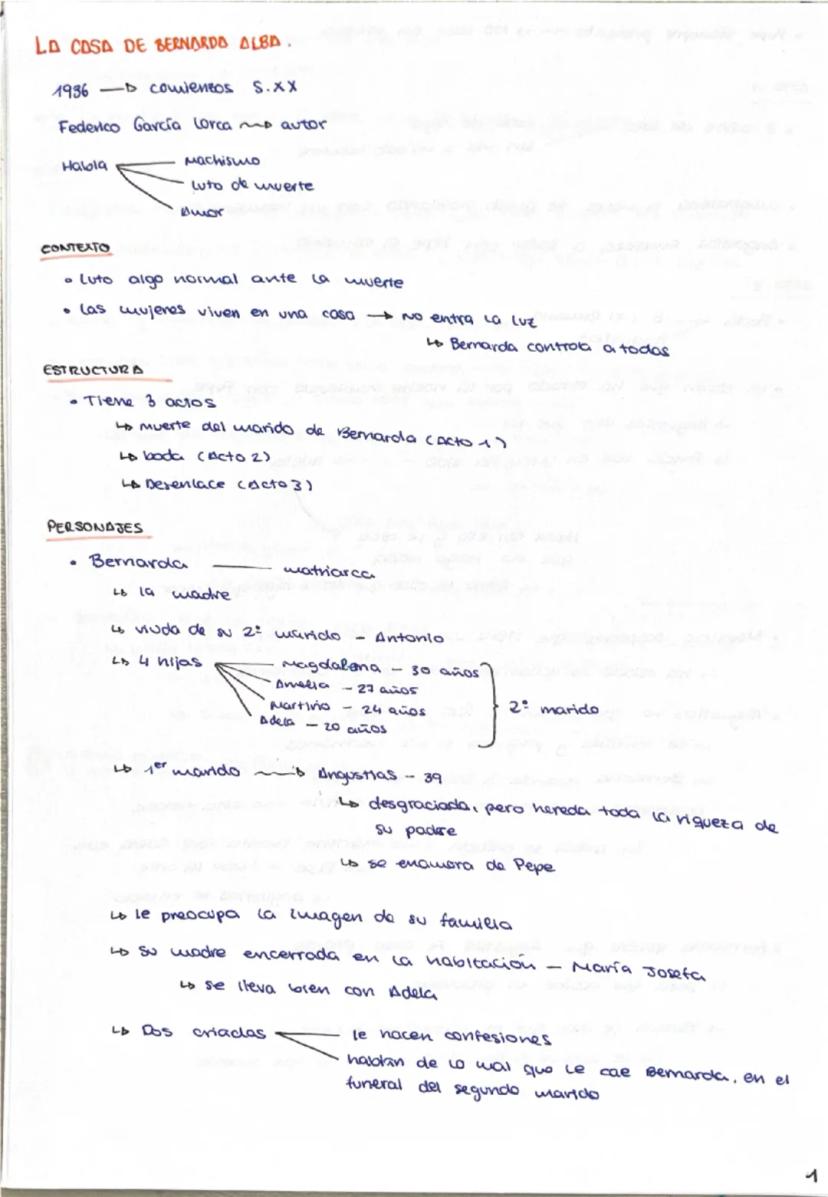 LA CASA DE BERNARDA ALBA.
1936 → comienzos S.XX
Federico García Lorca → autor
Habla
Machismo
luto de muerte
Amor
CONTEXTO
• luto algo normal ante la muerte
• las mujeres viven en una casa → no entra la luz
↳ Bernarda controla a todas
ESTRUCTURA
• Tiene 3 actos
↳ muerte del marido de Bernarda (Acto 1)
↳ boda (Acto 2)
↳ Desenlace (Acto 3)
PERSONAJES
• Bernarda — matriarca
↳ la madre
↳ viuda de su 2º marido - Antonio
↳ 4 hijas
Magdalena - 30 años
Amelia - 27 años
Martirio - 24 años
Adela - 20 años
2º marido
↳ 1er marido → Angustias - 39
↳ desgraciada, pero hereda toda la riqueza de
su padre
↳ se enamora de Pepe
↳ le preocupa la imagen de su familia
↳ Su madre encerrada en la habitación - María Josefa
↳ se lleva bien con Adela
↳ Dos criadas
le hacen confesiones
hablan de lo mal que le cae Bernarda, en el
funeral del segundo marido
1